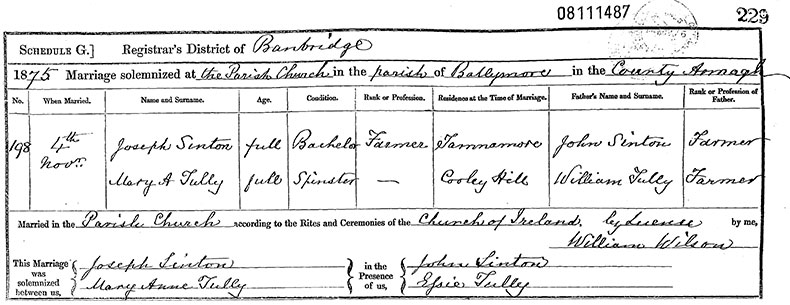 08111487
229
SCHEDULE G.] Registrar's District of Banbridge
1875 Marriage solemnized at the Parish Church in the parish of Ballymore in the County Armagh
No. When Married. Name and Surname. Age. Condition. Rank or Profession. Residence at the Time of Marriage. Father's Name and Surname. Rank or Profession of Father.
198 4th Novr. Joseph Sinton full Bachelor Farmer Tamnamore John Sinton Farmer
Mary A Tully full Spinster — Cooley Hill William Tully Farmer
Married in the Parish Church according to the Rites and Ceremonies of the Church of Ireland. by License by me,
William Wilson
This Marriage was solemnized between us, Joseph Sinton in the Presence of us, John Sinton
Mary Anne Tully Essie Tully